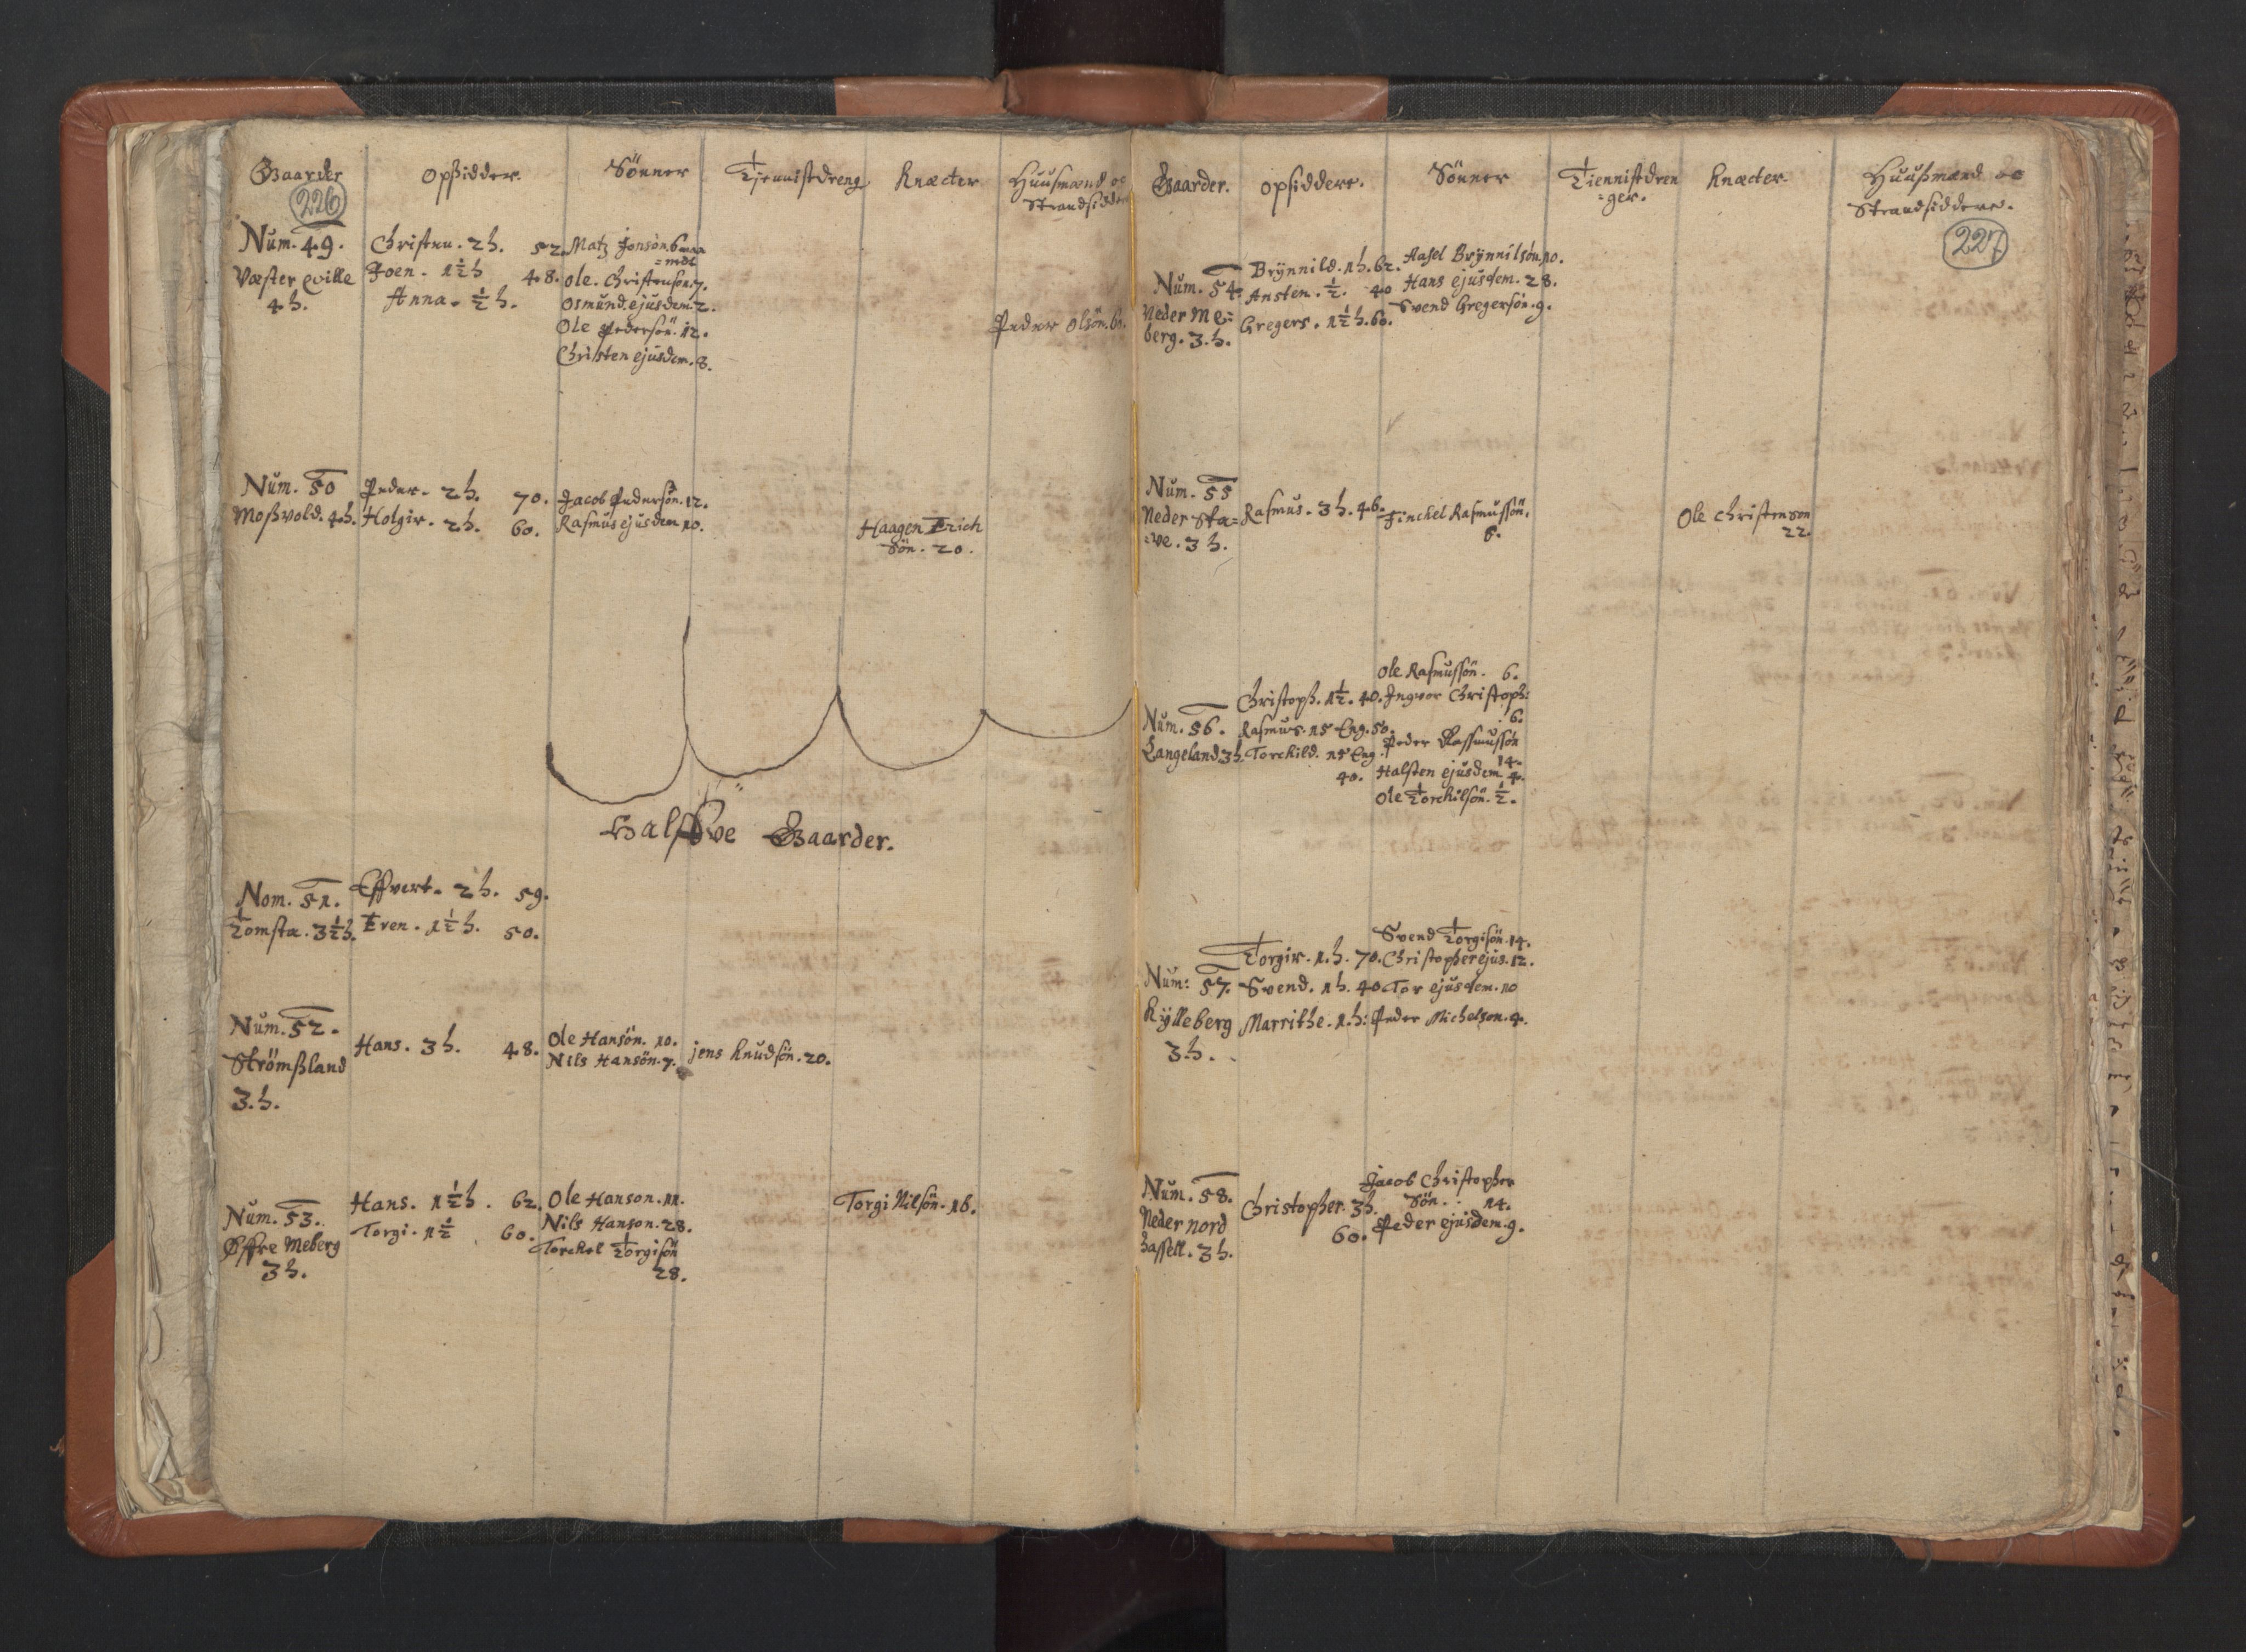 Gaarder
Opsidder.
Sönner
Tjennistdreng
Knæcter
Huusmænd oc
Strandsidder
226
Num. 49.
Væster qville
4 h.
Christen. 2 h. 52
Joen. 1½ h 48.
Anna. ½ h.
Matz Jonsön. 6 maa
=met
Ole. Christensön. 7.
Osmund ejusdem. 2.
Ole Pedersön. 12.
Christen ejusdem. 8.
Peder Olsön. 60.
Num. 50
Mossvold. 4 h.
Peder. 2 h. 70.
Holgir. 2 h. 60.
Jacob Pedersön. 12.
Rasmus ejusdem 10.
Haagen Erich
Sön. 20.
Halfve Gaarder.
Nom. 51.
Tomsta. 3½ h.
Effvert. 2 h. 59.
Even. 1½ h. 50.
Num. 52.
Strömsland
3. h.
Hans. 3 h. 48.
Ole Hansön. 10.
Nils Hansön. 7.
jens Knudsön. 20.
Num. 53.
Øffre Meberg
3 h.
Hans. 1½ h. 62.
Torgi. 1½ 60.
Ole Hanson. 11.
Nils Hanson. 28.
Torckel Torgisön
28.
Torgi Nilsön. 16.
Gaarder.
Opsiddere.
Sönner
Tiennistdren
=ger.
Knæcter.
Huusmænd oc
Strandsiddere.
227
Num. 54.
Neder Me=
berg. 3. h.
Brÿnnild. 1 h. 62.
Ansten. ½. 40
Gregers. 1½ h. 60.
Aasel Brÿnnilsön. 10.
Hans ejusdem. 28.
Svend Gregersön. 9.
Num. 55
Neder Sta=
=ve. 3 h.
Rasmus. 3 h. 46.
Finchel Rasmussön.
6.
Ole Christenson
22.
Num. 56.
Langeland 3 h.
Christoph. 1½. 40.
Rasmus. 15 Eng. 50.
Torchild. 15 Eng.
40.
Ole Rasmussön. 6.
Ingvor Christoph:
6.
Peder Rasmussön
14.
Halsten ejusdem 4.
Ole Torchilsön. ½.
Num: 57.
Kÿlleberg
3 h.
Torgir. 1. h. 70.
Svend. 1 h. 40
Marrithe. 1. h:
Svend Torgisön. 14.
Christopher ejus. 12.
Tor ejusdem. 10
Peder Michelson. 4.
Num. 58.
Neder nord
hassell. 3 h.
Christopher. 3 h.
60.
Jacob Christopher
Sön. 14.
Peder ejusdem. 9.